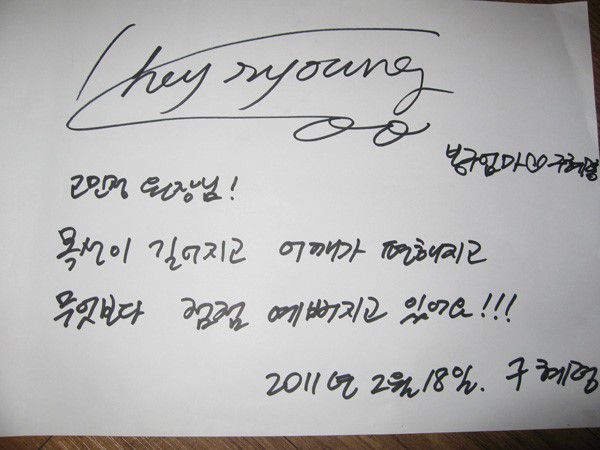 hey ryoung
구혜령
고민정 원장님!
목선이 길어지고 어깨가 편해지고
무엇보다 점점 예뻐지고 있어요!!!
2011년 2월 18일. 구혜령